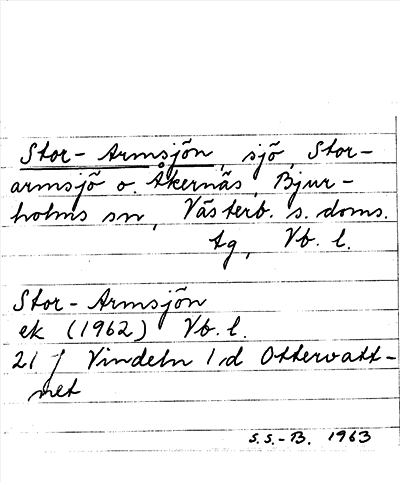 Stor-Armsjön, sjö, Stor-
armsjö o. Åkernäs, Bjur-
holms sn, Västerb. s. doms.
tg, Vb. l.
Stor-Armsjön
ek (1962) Vb. l.
21 J Vindeln 1d Ottervatt-
net
S.S.-B. 1963